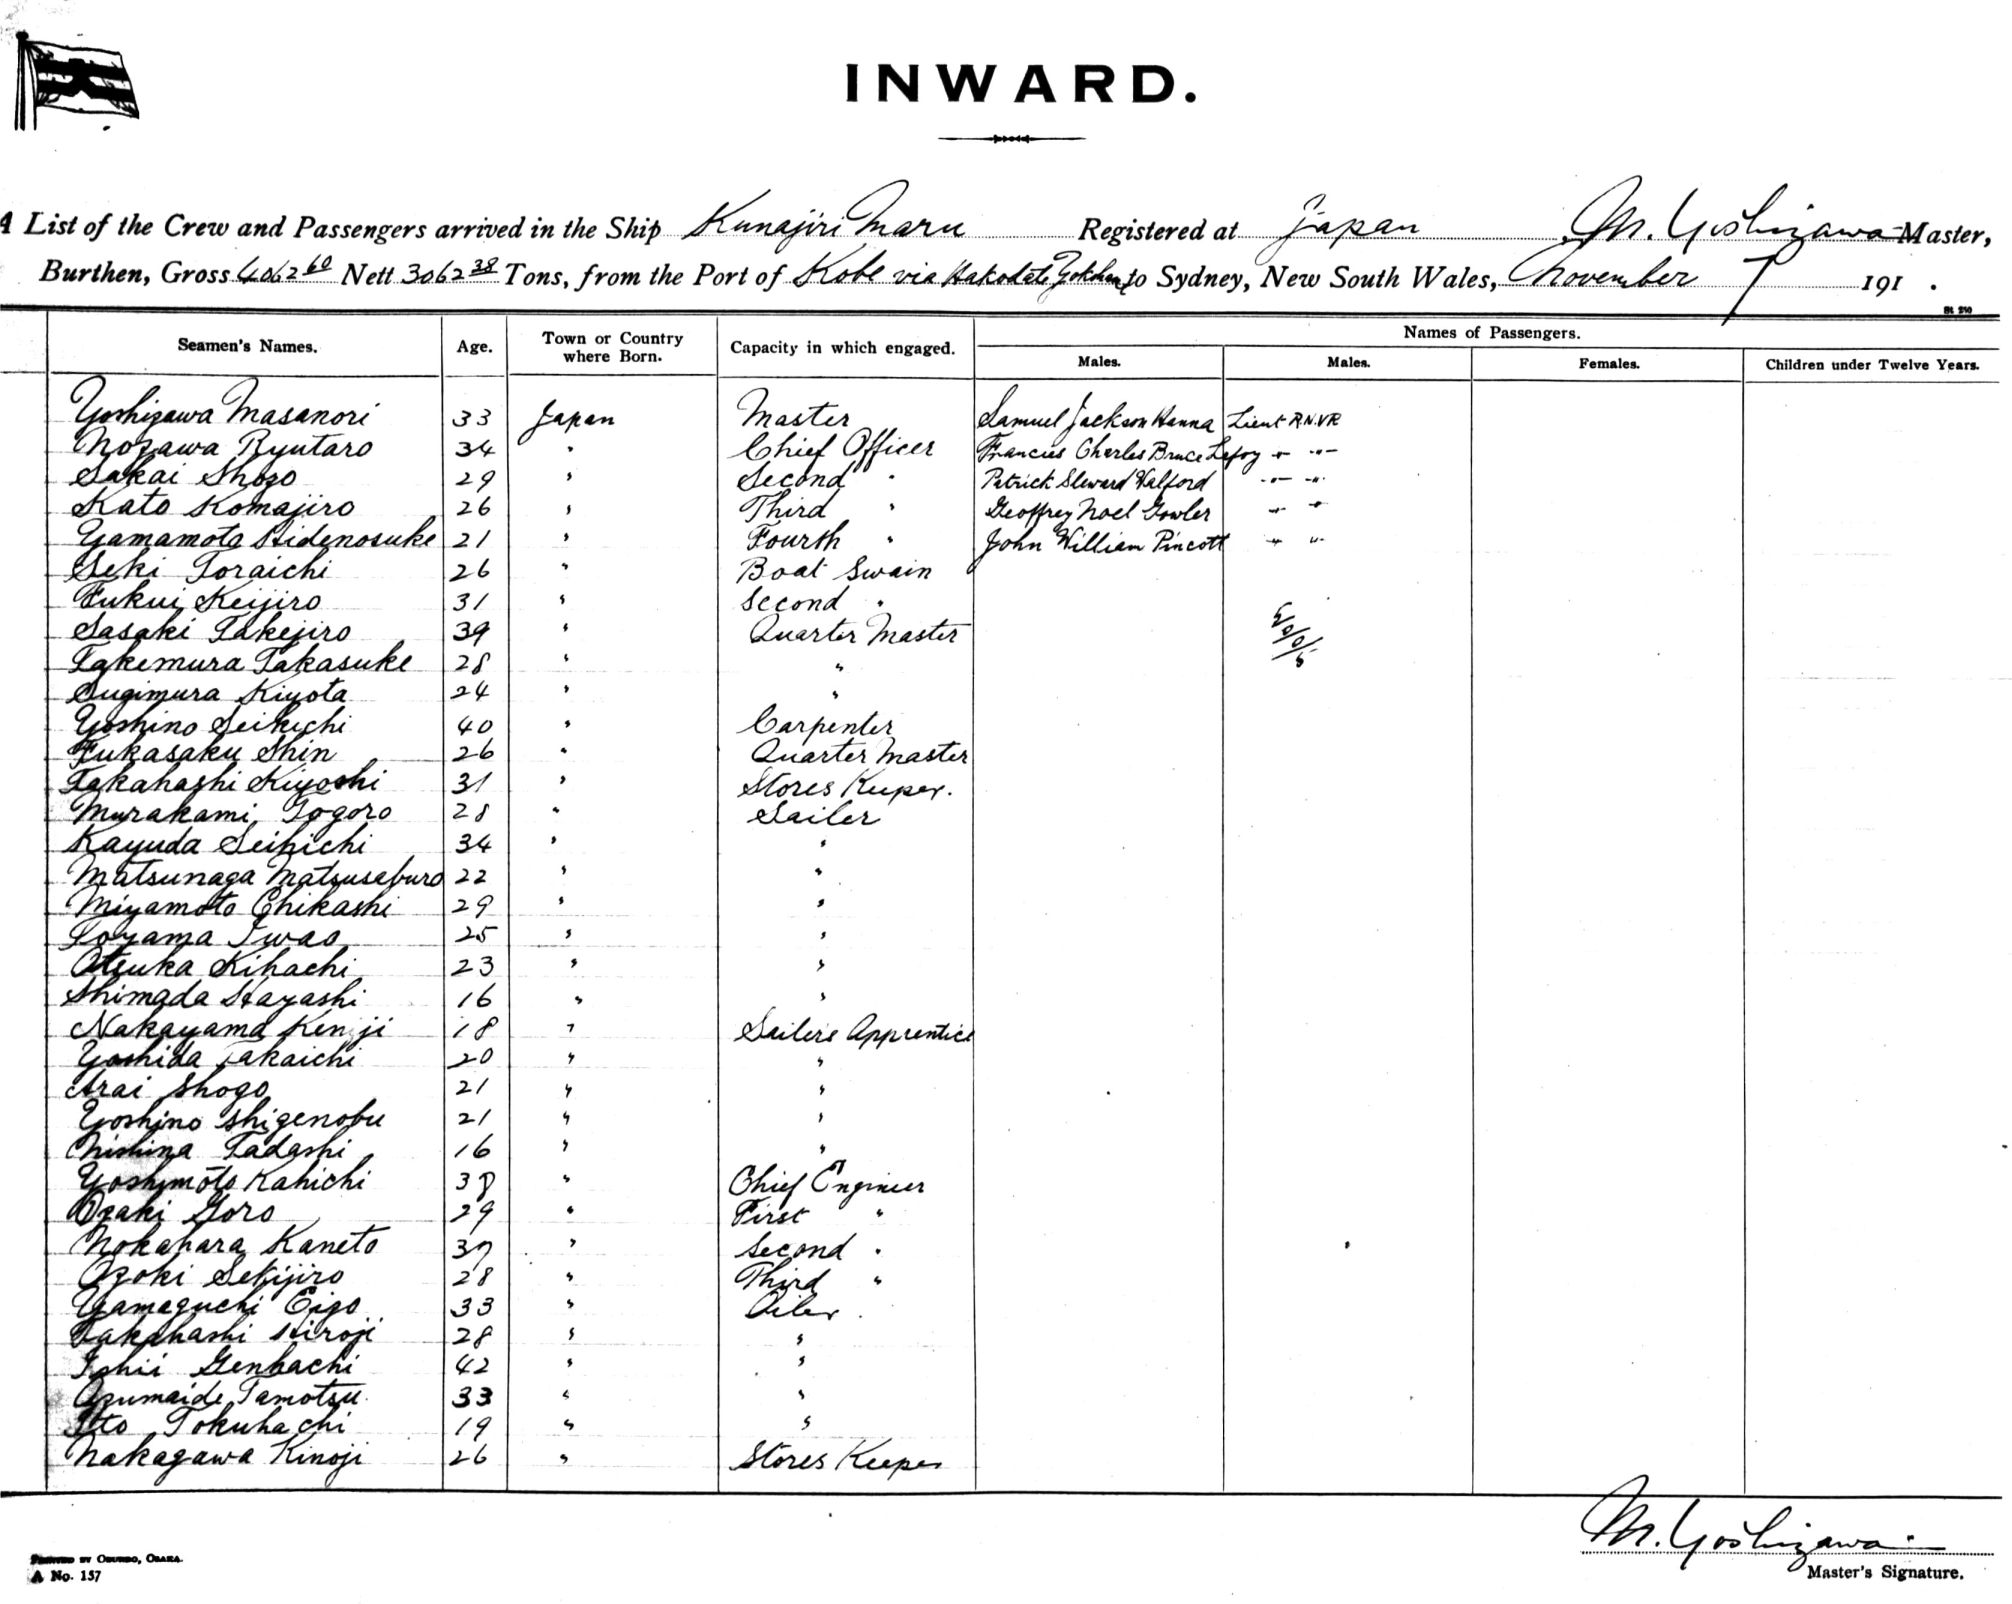 INWARD.
A List of the Crew and Passengers arrived in the Ship Kunajiri Maru Registered at Japan M. Yoshizawa Master,
Burthen, Gross 4062 60 Nett 3062 38 Tons, from the Port of Kobe via Hakodate to Sydney, New South Wales, November 7 191 .
Seamen's Names. Age. Town or Country where Born. Capacity in which engaged. Names of Passengers.
Males. Males. Females. Children under Twelve Years.
Yoshizawa Masanori 33 Japan Master Samuel Jackson Hanna Lieut R.N.V.R
Nozawa Ryutaro 34 " Chief Officer Francis Charles Bruce Lefoy " "
Sakai Shozo 29 " Second " Patrick Steward Halford " "
Kato Komajiro 26 " Third " Geoffrey Noel Gowler " "
Yamamoto Hidenosuke 21 " Fourth " John William Pincott " "
Seki Toraichi 26 " Boat Swain
Fukui Keijiro 31 " Second "
Sasaki Takejiro 39 " Quarter Master
Takemura Takasuke 28 " "
Sugimura Kiyota 24 " "
Yoshino Seikichi 40 " Carpenter
Fukasaku Shin 26 " Quarter Master
Takahashi Kiyoshi 31 " Stores Keeper.
Murakami Togoro 28 " Sailer
Kayuda Seihichi 34 " "
Matsunaga Matsusaburo 22 " "
Miyamoto Chikashi 29 " "
Toyama Iwao 25 " "
Otsuka Kihachi 23 " "
Shimada Hayashi 16 " "
Nakayama Kenji 18 " Sailer's Apprentice
Yoshida Takaichi 20 " "
Arai Shogo 21 " "
Yoshino Shigenobu 21 " "
Nishina Tadashi 16 " "
Yoshimoto Kahichi 38 " Chief Engineer
Ozaki Goro 29 " First "
Nokahara Kaneto 37 " Second "
Ozoki Sekijiro 28 " Third "
Yamaguchi Eizo 33 " Oiler
Takahashi Hiroji 28 " "
Ishii Genhachi 42 " "
Azumaide Tamotsu 33 " "
Ito Tokuhachi 19 " "
Nakagawa Kinoji 26 " Stores Keeper
M. Yoshizawa
Master's Signature.
Printed by Osaka.
A No. 157